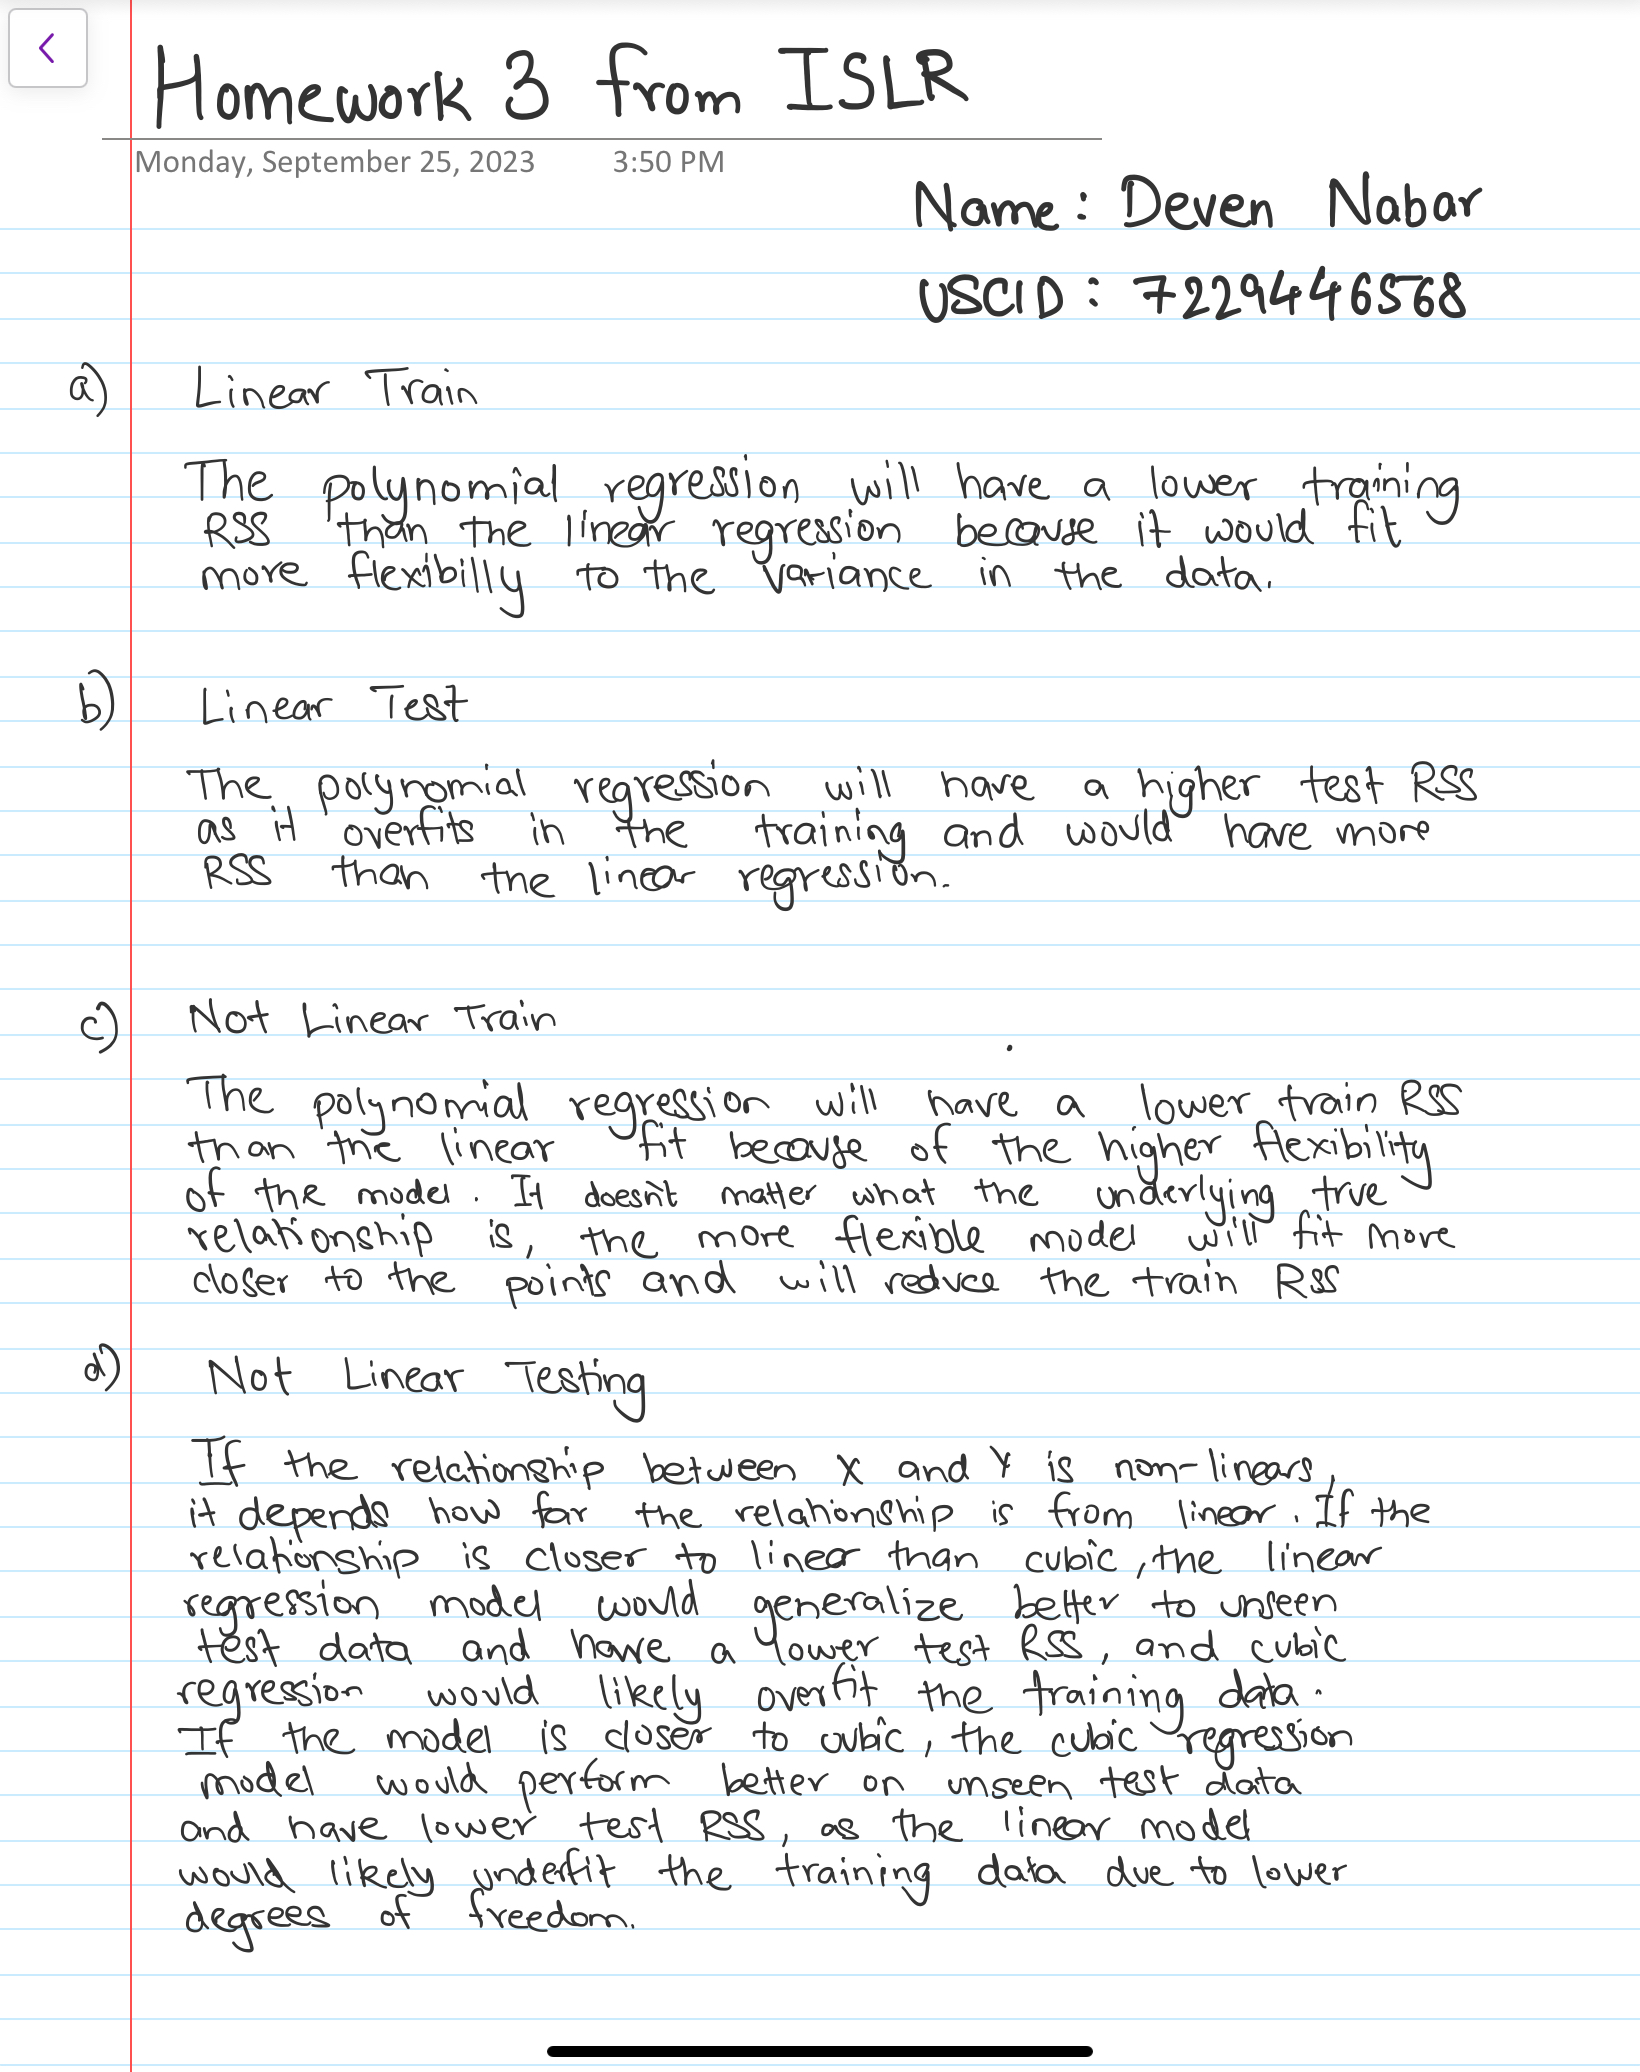 Homework 3 from ISLR
Monday, September 25, 2023 3:50 PM
Name: Deven Nabar
USCID: 7229446568
a) Linear Train
The polynomial regression will have a lower training
RSS than the linear regression because it would fit
more flexibilly to the variance in the data.
b) Linear Test
The polynomial regression will have a higher test RSS
as it overfits in the training and would have more
RSS than the linear regression.
c) Not Linear Train
The polynomial regression will have a lower train RSS
than the linear fit because of the higher flexibility
of the model. It doesn't matter what the underlying true
relationship is, the more flexible model will fit more
closer to the points and will reduce the train RSS
d) Not Linear Testing
If the relationship between X and Y is non-linears,
it depends how far the relationship is from linear. If the
relationship is closer to linear than cubic, the linear
regression model would generalize better to unseen
test data and have a lower test RSS, and cubic
regression would likely overfit the training data.
If the model is closer to cubic, the cubic regression
model would perform better on unseen test data
and have lower test RSS, as the linear model
would likely underfit the training data due to lower
degrees of freedom.